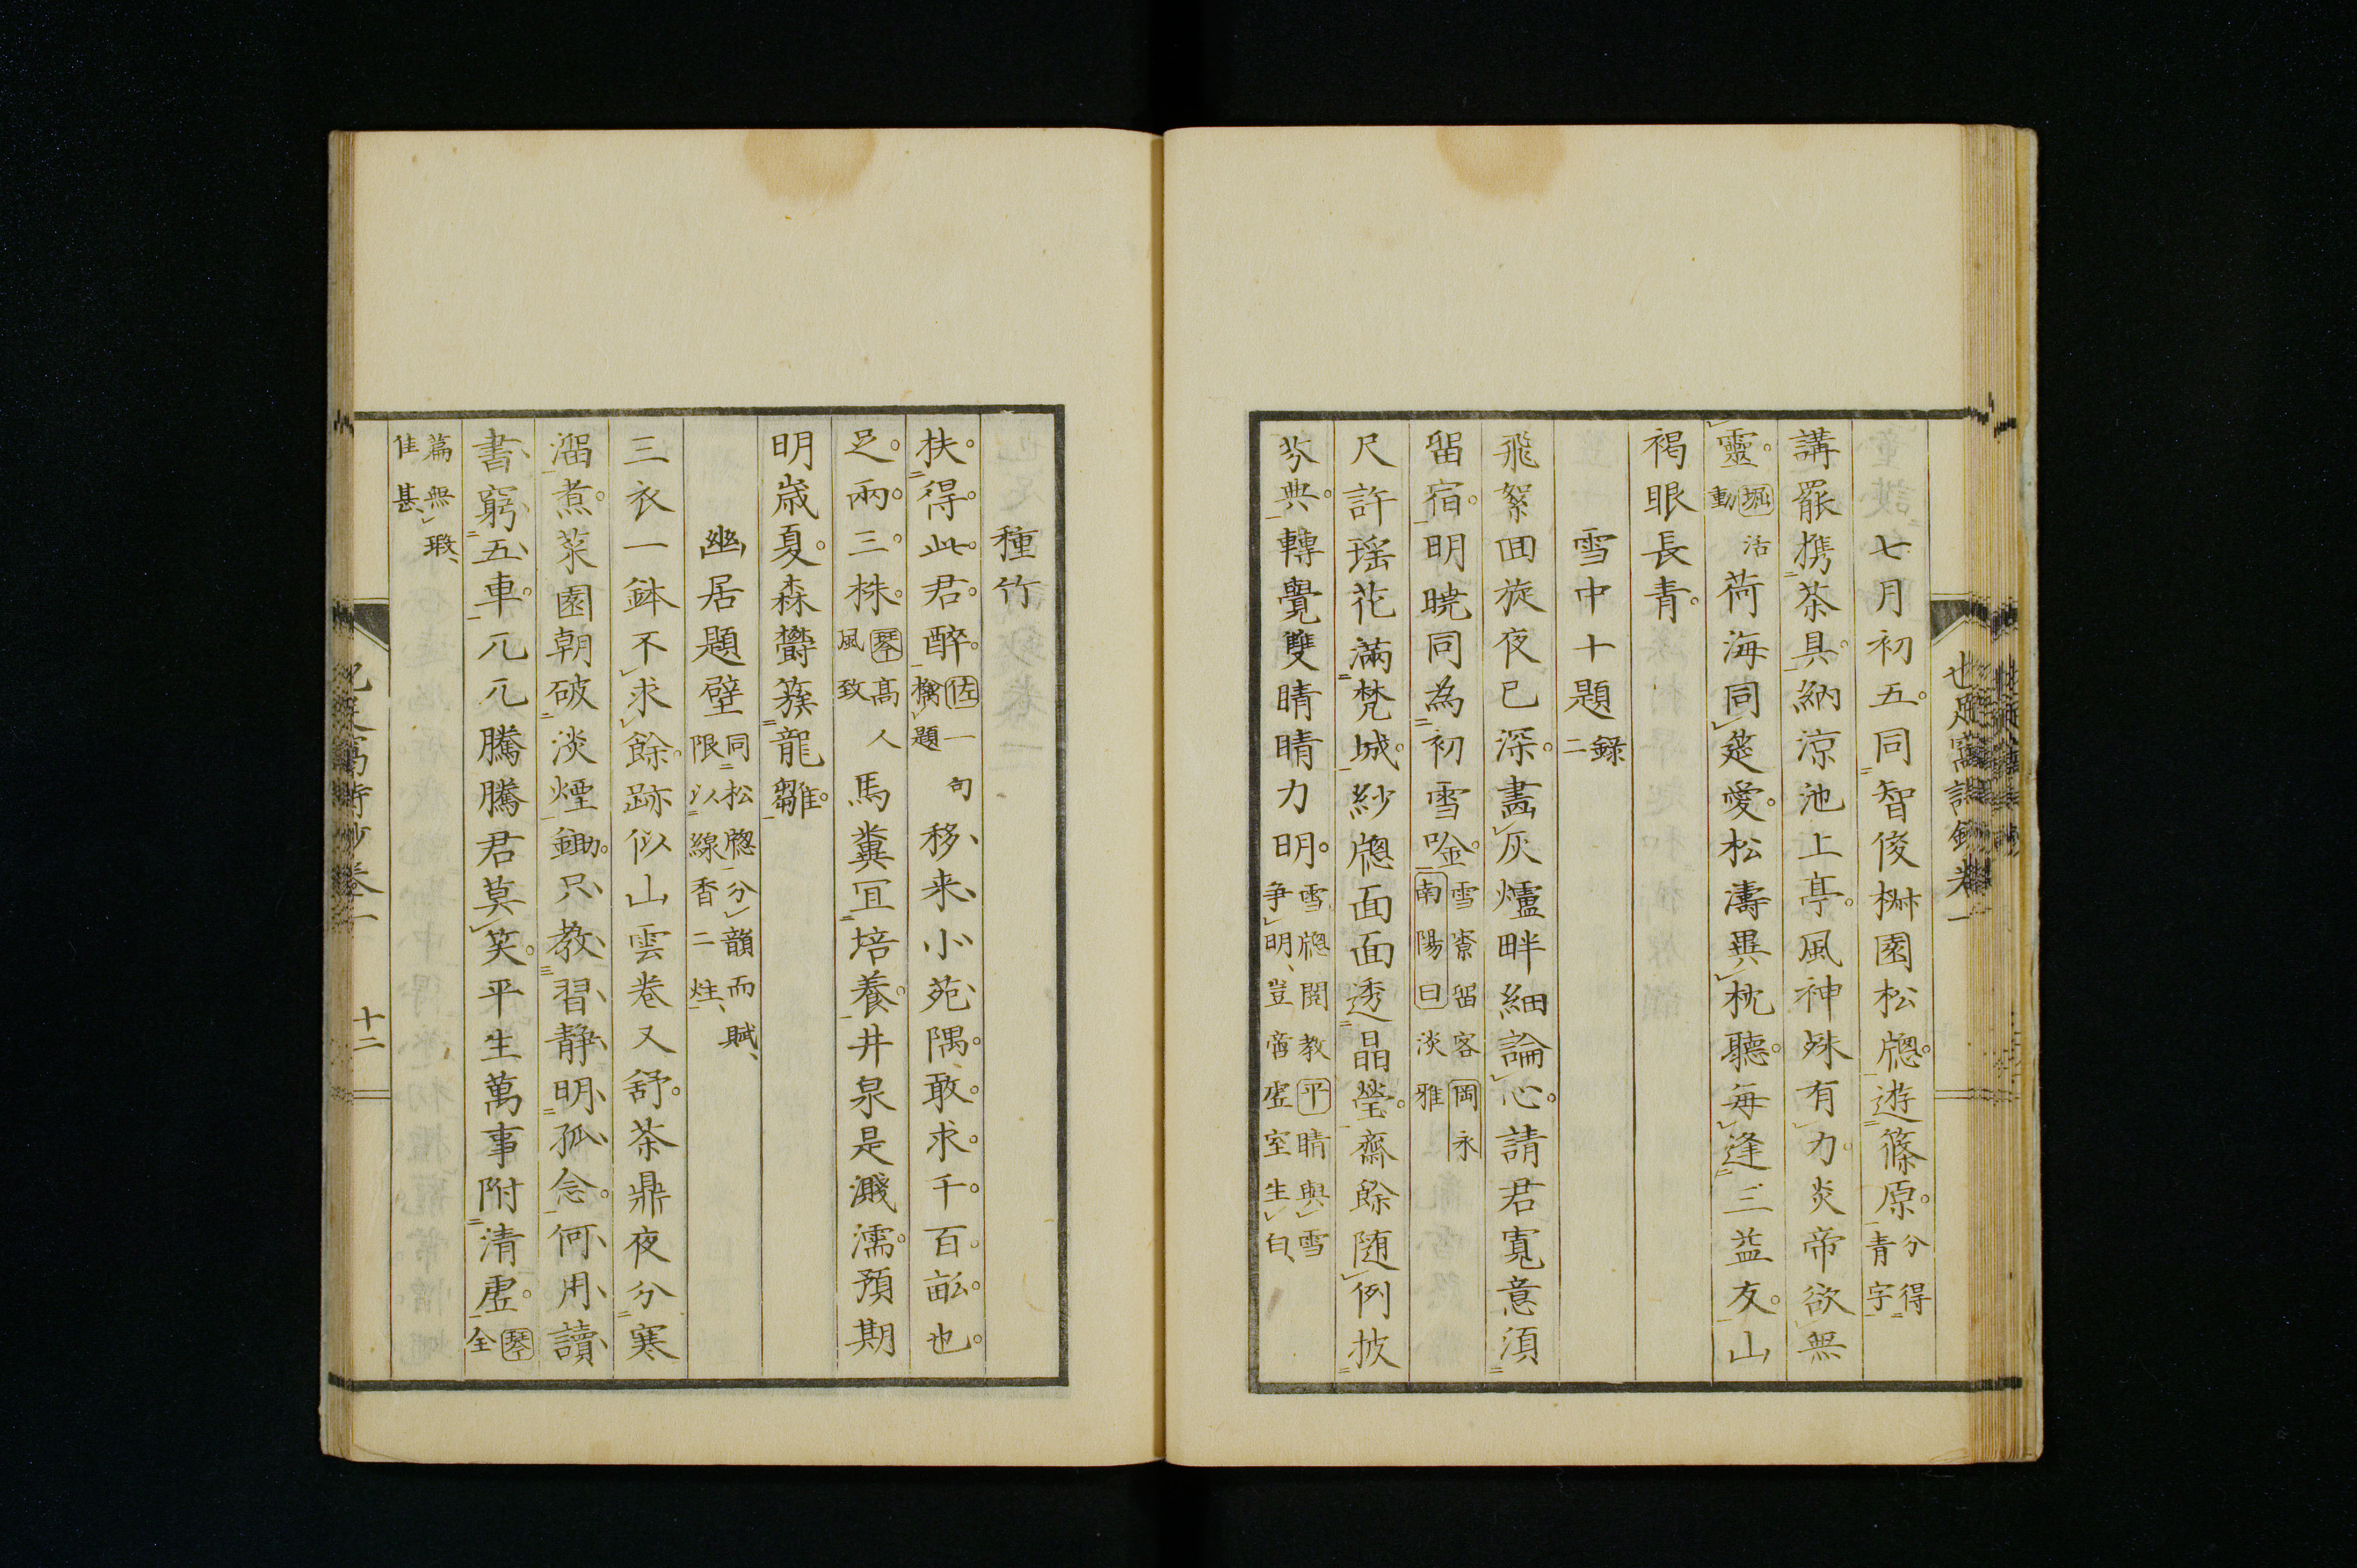 七月初五同智俊栁園松牕遊篠原分得青字
講罷携茶具納涼池上亭風神殊有力炎帝欲無
靈堀活動荷海同筵愛松濤異枕聽每逢三益友山
褐眼長青
雪中十題錄二
飛絮回旋夜已深畫灰爐畔細論心請君寬意須
留宿明曉同為初雪唫雪寮留客岡永南陽曰淡雅
尺許瑶花滿梵城紗牕面面透晶瑩齋餘随例披
芬典轉覺雙睛晴力明雪牕閱教平睛與雪爭明豈啻虛室生白
也足窩詩鈔卷一
種竹
扶得此君醉佐一句擒題移来小苑隅敢求千百畝也
足兩三株琴高人風致馬糞冝培養井泉是濺濡預期
明歲夏森欝簇龍雛
幽居題壁同松牕分韻而賦限以線香二炷
三衣一鉢不求餘跡似山雲卷又舒茶鼎夜分寒
溜煮菜園朝破淡煙鋤只教習静明孤念何用讀
書窮五車兀兀騰騰君莫笑平生萬事附清虛琴全
篇無瑕佳甚
也足窩詩鈔卷一 十二